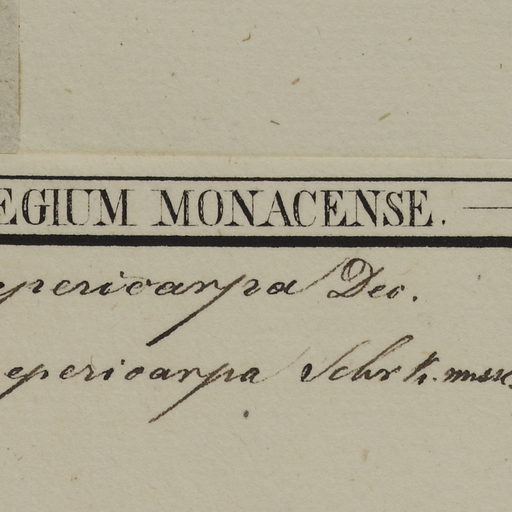 EGIUM MONACENSE. —
epericarpa Dec.
epericarpa Schrk. mss